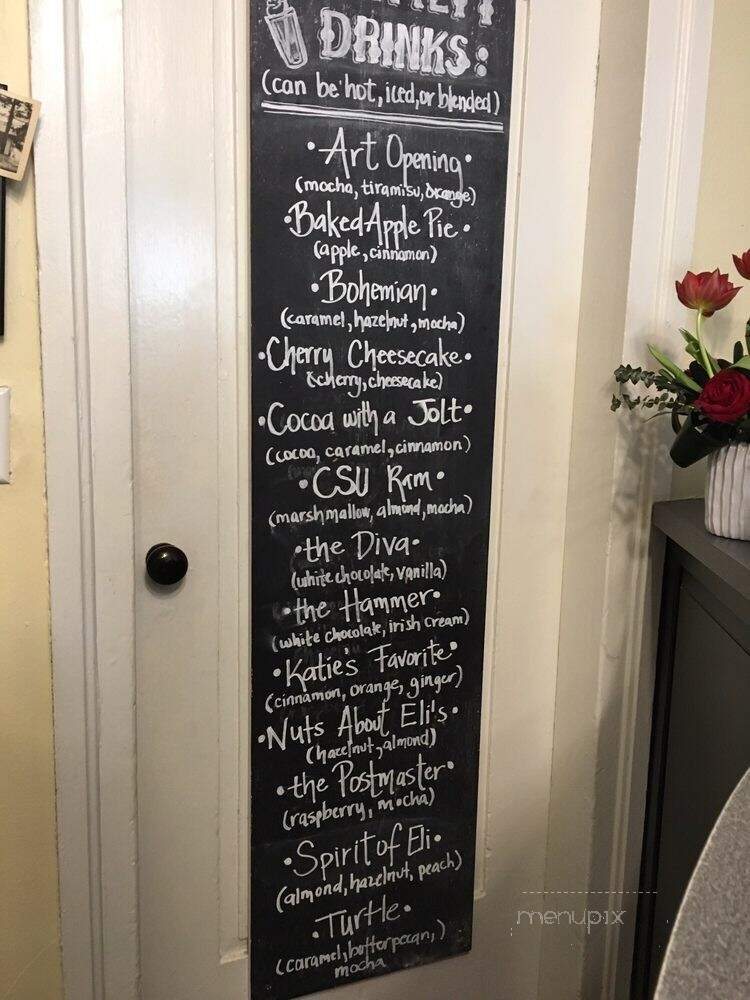 DRINKS:
(can be hot, iced, or blended)
•Art Opening•
(mocha, tiramisu, orange)
•Baked Apple Pie•
(apple, cinnamon)
•Bohemian•
(caramel, hazelnut, mocha)
•Cherry Cheesecake•
(cherry, cheesecake)
•Cocoa with a Jolt•
(cocoa, caramel, cinnamon)
•CSU Ram•
(marshmallow, almond, mocha)
•the Diva•
(white chocolate, vanilla)
•the Hammer•
(white chocolate, irish cream)
•Katie's Favorite•
(cinnamon, orange, ginger)
•Nuts About Eli's•
(hazelnut, almond)
•the Postmaster•
(raspberry, mocha)
•Spirit of Eli•
(almond, hazelnut, peach)
•Turtle•
(caramel, butterpecan,)
mocha
menupix